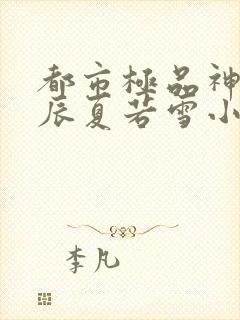 都市極品神
辰夏若雪小
李凡